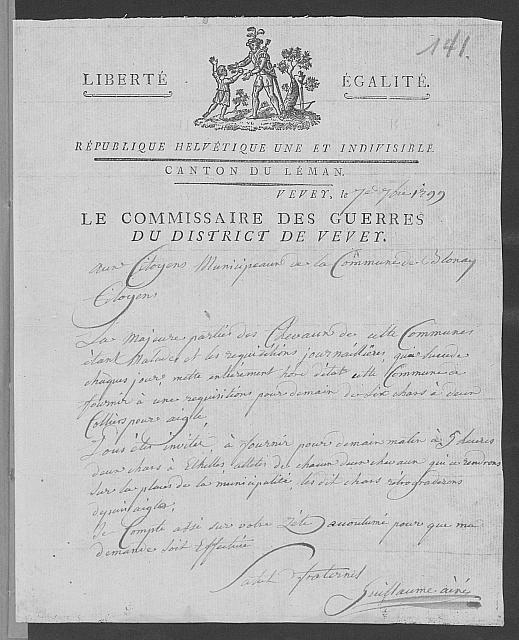 141.
LIBERTÉ ÉGALITÉ.
RÉPUBLIQUE HELVÉTIQUE UNE ET INDIVISIBLE.
CANTON DU LÉMAN.
VEVEY, le 7e 7bre 1799
LE COMMISSAIRE DES GUERRES
DU DISTRICT DE VEVEY.
aux Citoyens Municipeaux de la Commune de Blonay
Citoyens
La Majeure partie des Chevaux de cette Commune
étant Malades et les requisitions journaillières, qua lieu de
chaques jour, mette entièrement hors d'état cette Commune a
fournir à une requisitions pour demain de six chars à deux
Colliers pour aigle,
Vous êtes invités, à fournir pour demain matin à 5 heures
deux chars à Echelles attelés de chacun deux chevaux qui ce rendrons
sur la place de la municipalité, les dit chars retrograderons
depuis aigle,
Je Compte assé sur votre Zèle acoutumé pour que ma
demande soit Effectuée
Salut fraternel
Guillaume ainé